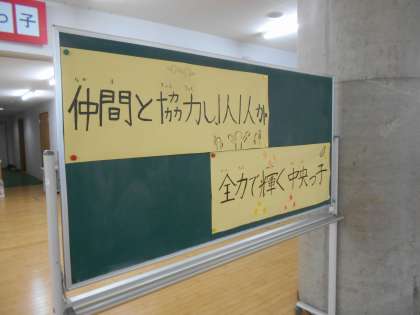 っ子
仲間と協力し1人1人が
全力で輝く中央っ子